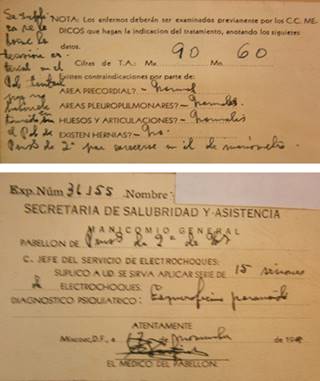 NOTA: Los enfermos deberán ser examinados previamente por los C.C. ME-
DICOS que hagan la indicacion del tratamiento, anotando los siguietes
datos.
Cifras de T.A: Mx 90 Mn 60
Existen contraindicaciones por parte de:
AREA PRECORDIAL? - Normal
AREAS PLEUROPULMONARES? - Normales
HUESOS Y ARTICULACIONES? - Normales
EXISTEN HERNIAS? - No.
Pens de 2ª por carecerse en él de manómetro
Exp. Núm 36155 Nombre:
SECRETARIA DE SALUBRIDAD Y ASISTENCIA
MANICOMIO GENERAL
PABELLON DE Pens de 2ª de
C. JEFE DEL SERVICIO DE ELECTROCHOQUES:
SUPLICO A UD. SE SIRVA APLICAR SERIE DE 15 sesiones
de ELECTROCHOQUES:
DIAGNOSTICO PSIQUIATRICO: Esquizofrenia paranoide
ATENTAMENTE
Mixcoac, D.F., a 17 de noviembre de 194
EL MEDICO DEL PABELLON.